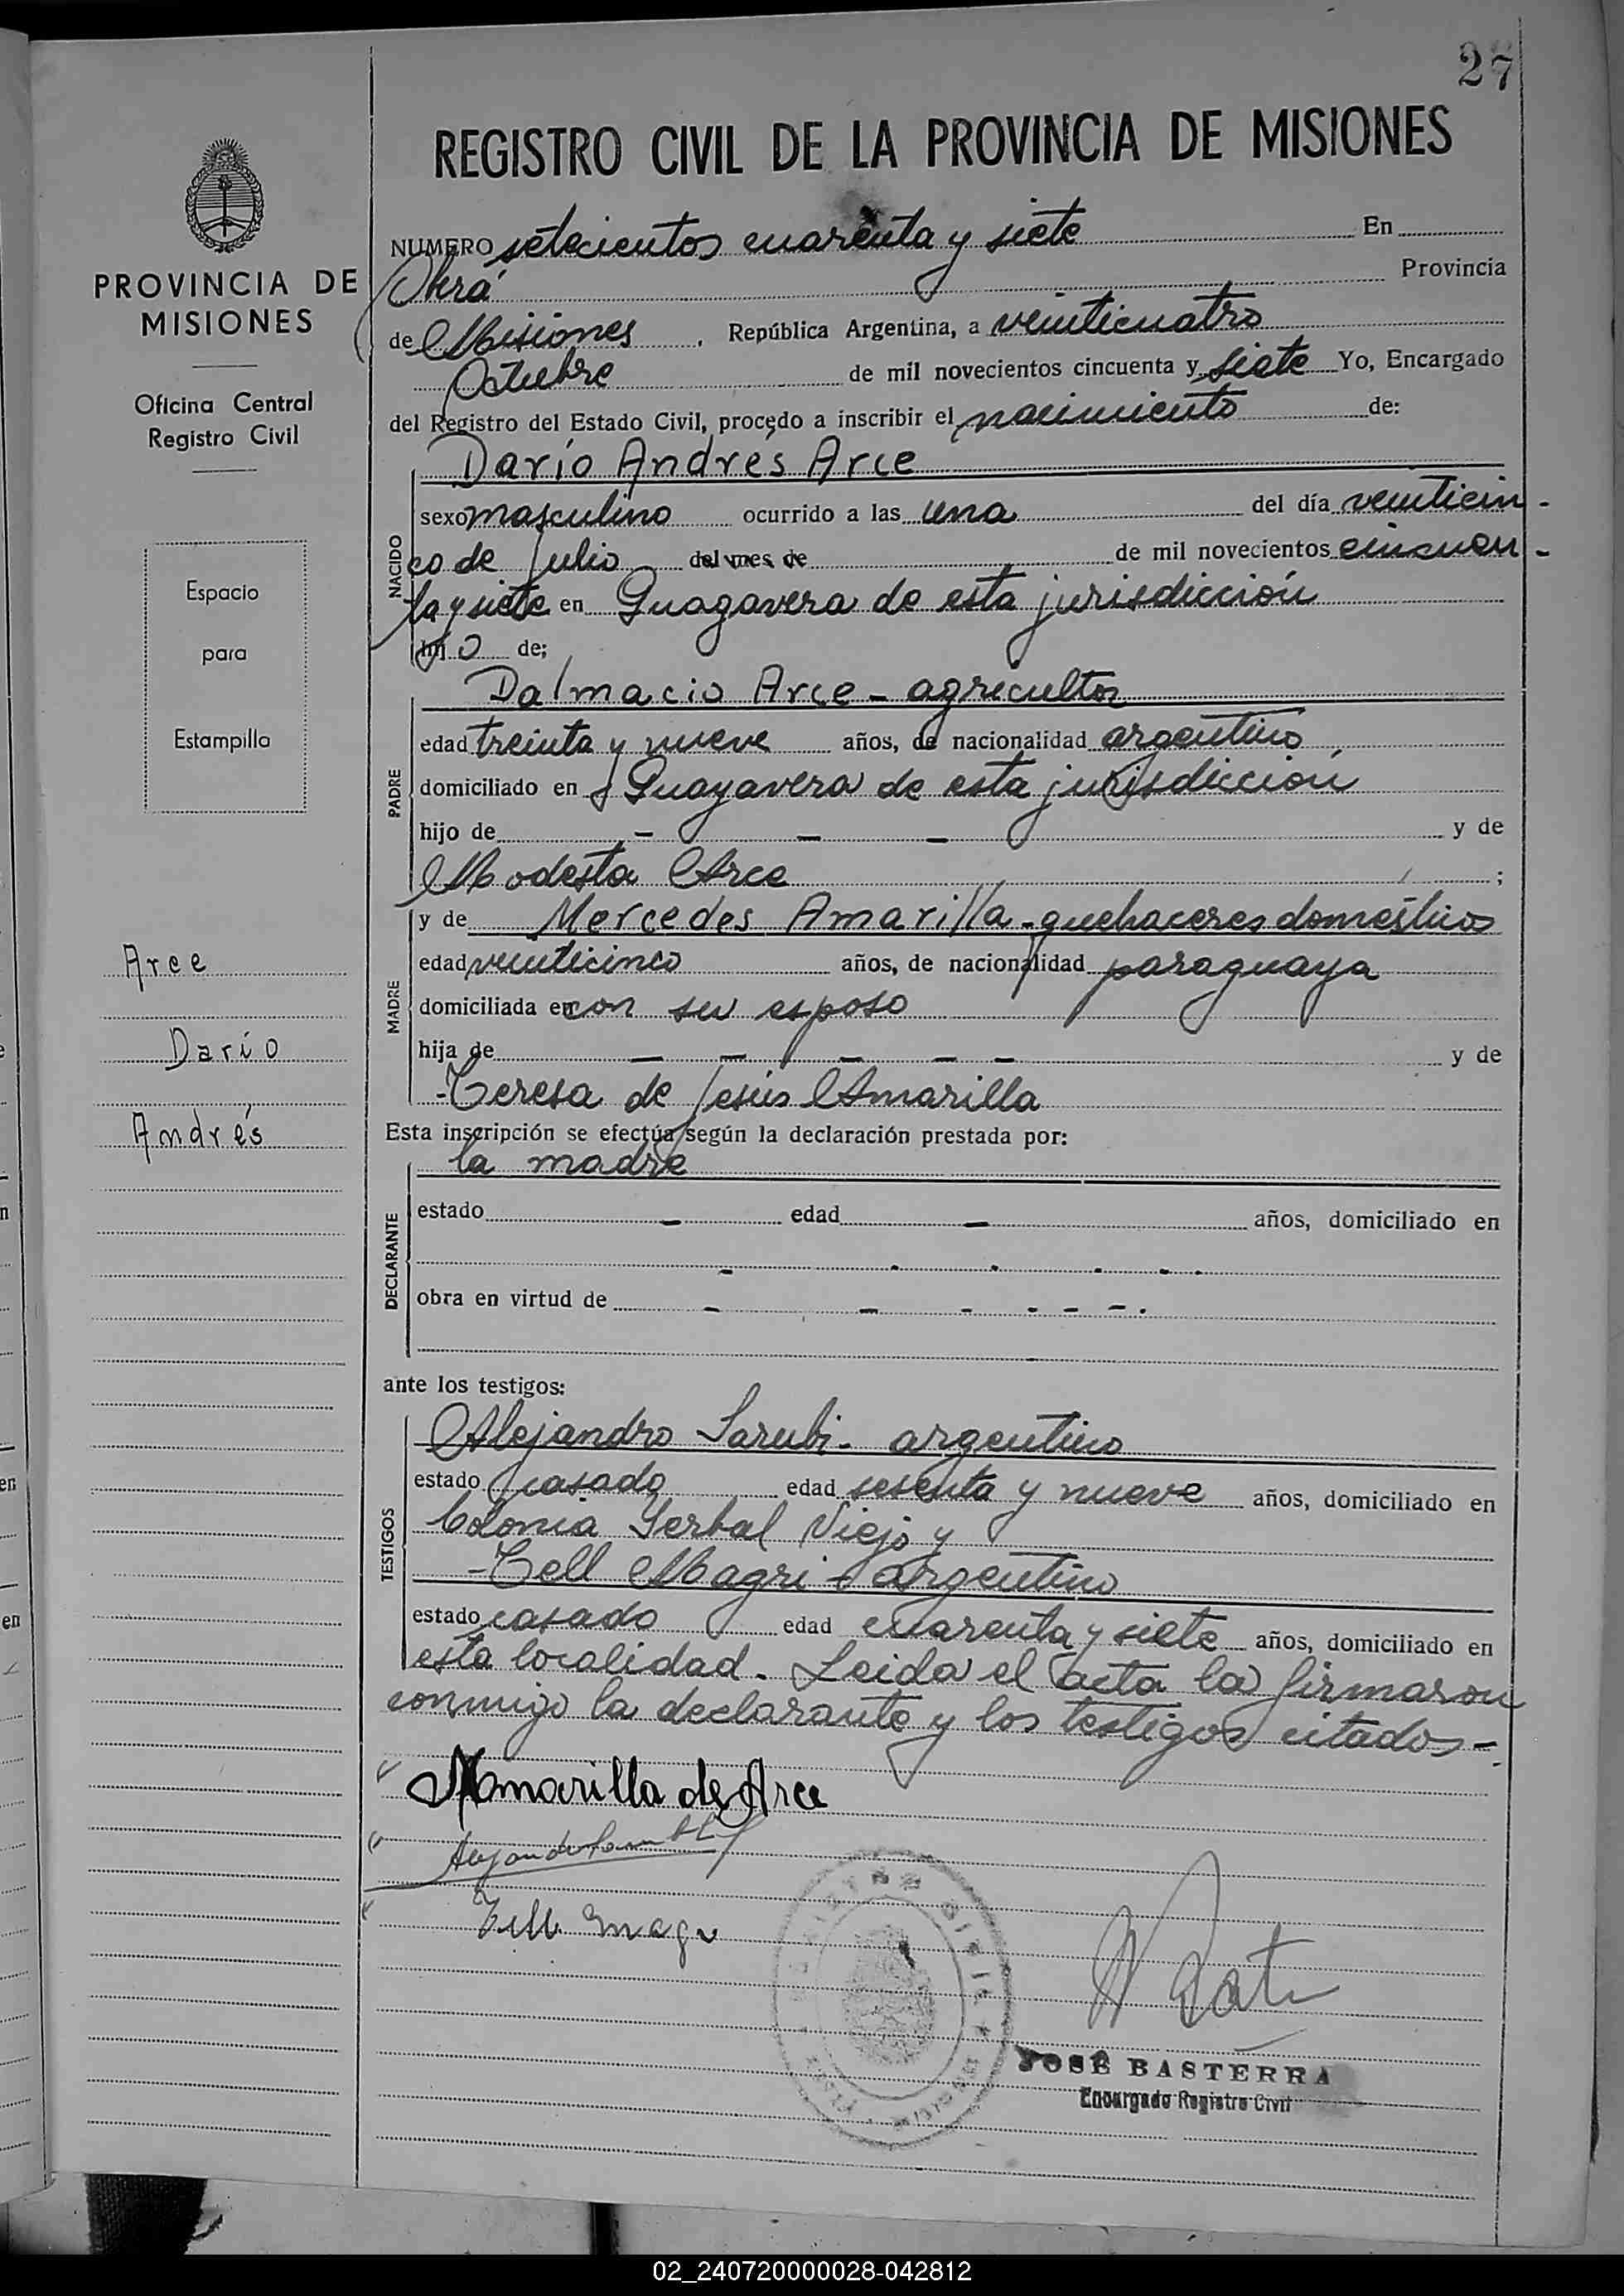 27
REGISTRO CIVIL DE LA PROVINCIA DE MISIONES
NUMERO setecientos cuarenta y siete En
Oberá Provincia
de Misiones, República Argentina, a veinticuatro
Octubre de mil novecientos cincuenta y siete Yo, Encargado
del Registro del Estado Civil, procedo a inscribir el nacimiento de:
Darío Andrés Arce
sexo masculino ocurrido a las una del día veinticin-
co de Julio del mes de de mil novecientos cincuen-
ta y siete en Guayavera de esta jurisdicción
hijo de;
Dalmacio Arce - agricultor
edad treinta y nueve años, de nacionalidad argentino
domiciliado en Guayavera de esta jurisdicción
hijo de - - - y de
Modesta Arce ;
y de Mercedes Amarilla - quehaceres domésticos
edad veinticinco años, de nacionalidad paraguaya
domiciliada en con su esposo
hija de - - - - - y de
Teresa de Jesús Amarilla
Esta inscripción se efectúa según la declaración prestada por:
la madre
estado - edad - años, domiciliado en
- - - - - -
obra en virtud de - - - - - - .
ante los testigos:
Alejandro Sarubi - argentino
estado casado edad sesenta y nueve años, domiciliado en
Colonia Yerbal Viejo y
Tell Magri - argentino
estado casado edad cuarenta y siete años, domiciliado en
esta localidad. Leida el acta la firmaron
conmigo la declarante y los testigos citados -
NACIDO
PADRE
MADRE
DECLARANTE
TESTIGOS
MAmarilla de Arce
Tell Magri
JOSÉ BASTERRA
Encargado Registro Civil
PROVINCIA DE
MISIONES
Oficina Central
Registro Civil
Espacio
para
Estampilla
Arce
Darío
Andrés
02_240720000028-042812